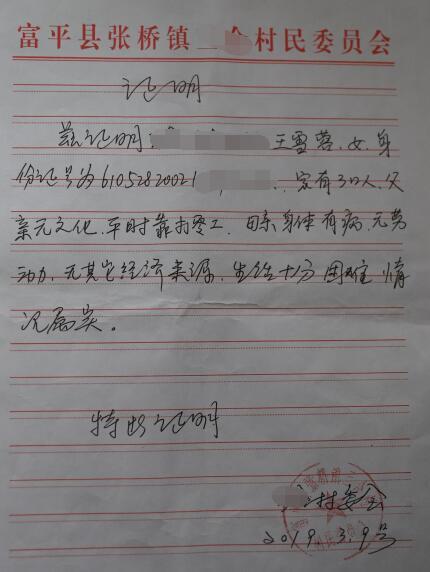 富平县张桥镇 村民委员会
证明
兹证明: 王雪蓉、女、身
份证号为6105282002 , 家有3口人, 父
亲无文化, 平时靠打零工, 母亲身体有病, 无劳
动力, 无其它经济来源, 生活十分困难 情
况属实。
特此证明
村委会
2019.3.9号